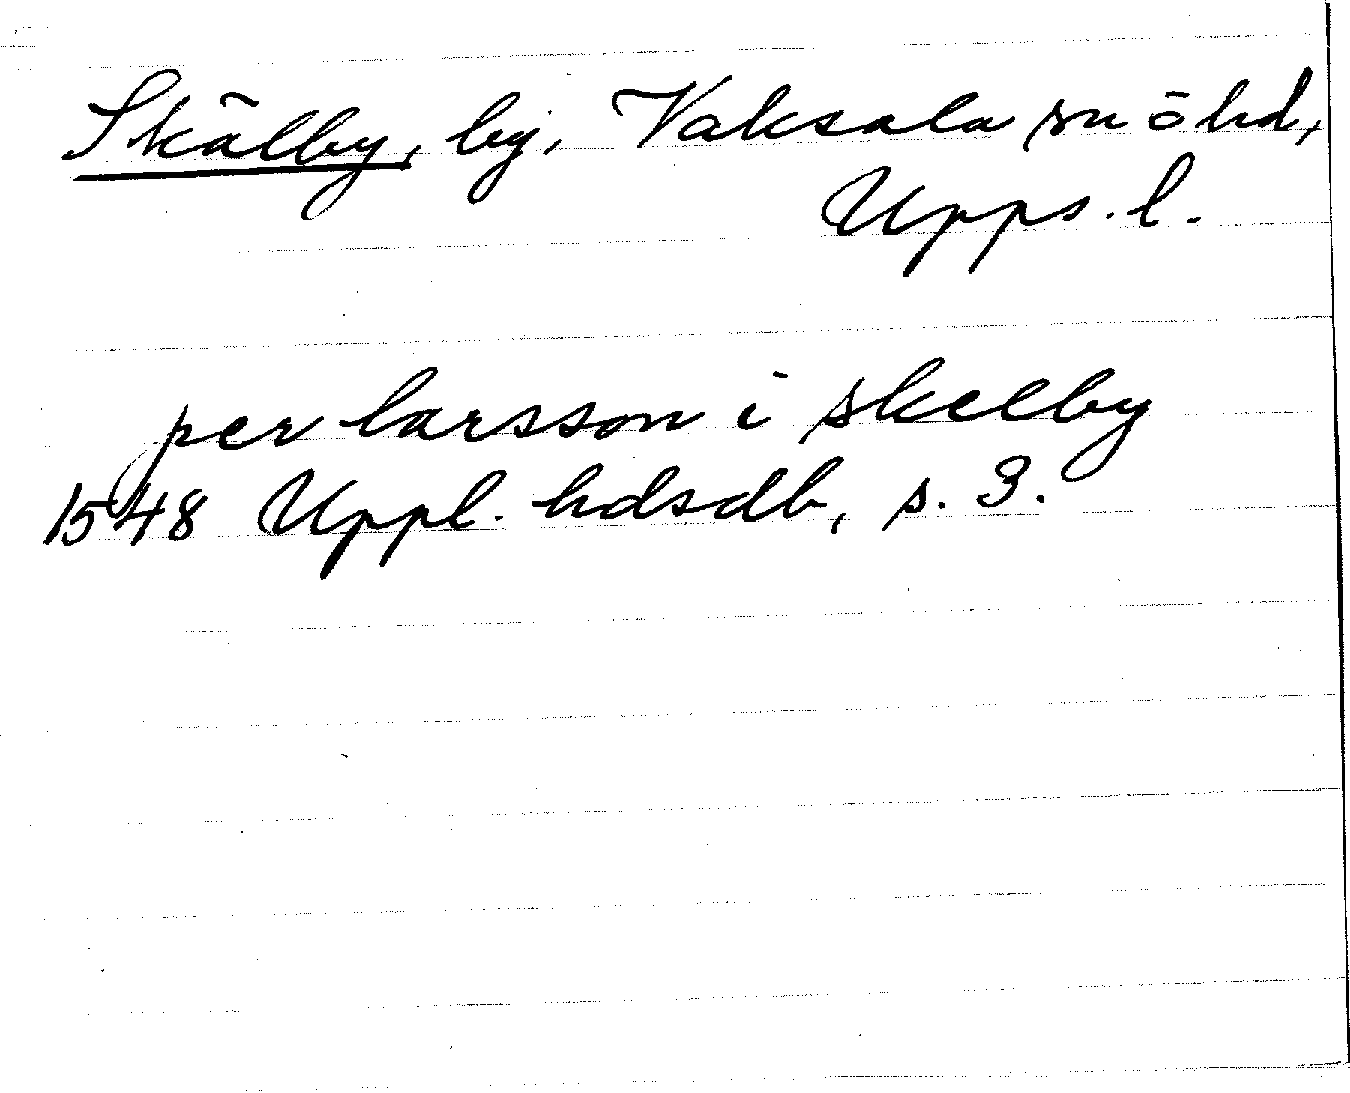 Skälby, by, Vaksala sn ö hd,
Upps. l.
per larsson i skelby
1548 Uppl. hdsdb, s. 3.